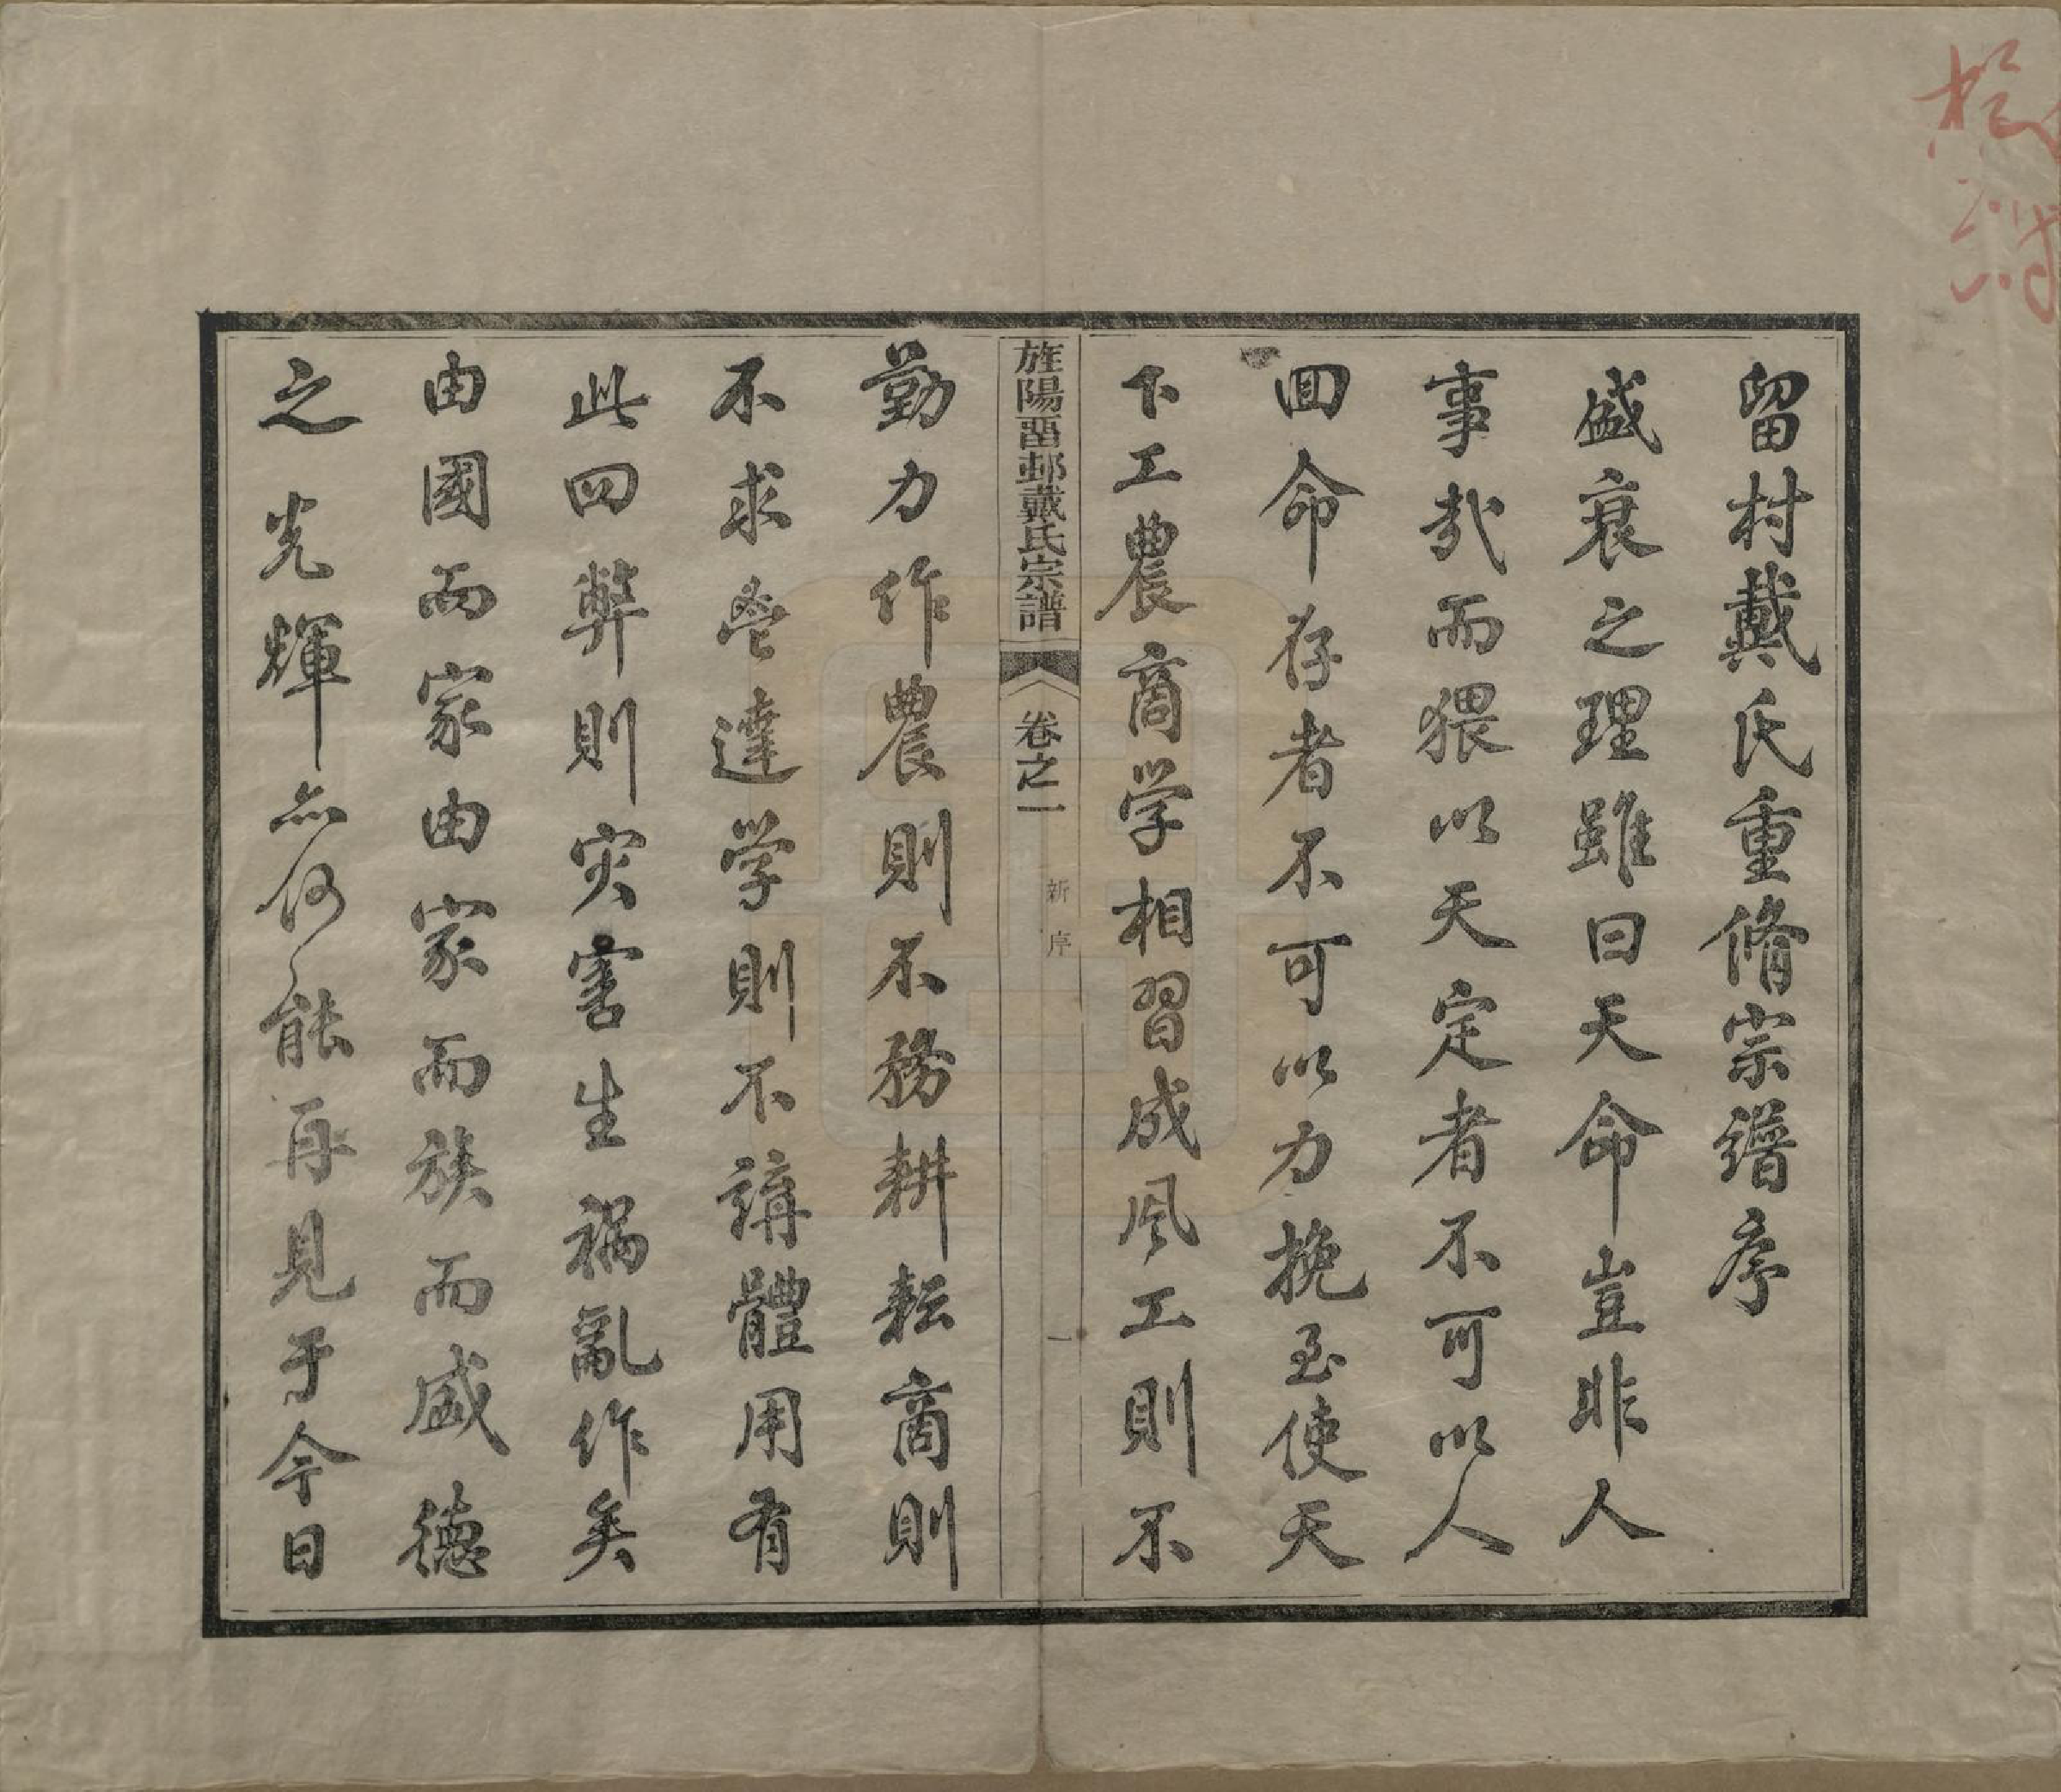 留村戴氏重脩宗譜序
盛衰之理雖曰天命豈非人
事哉而猥以天定者不可以人
回命存者不可以力挽至使天
下工農商学相習成風工則不
旌陽畱邨戴氏宗譜
卷之一
新序
一
勤力作農則不務耕耘商則
不求營達学則不講體用有
此四弊則灾害生禍亂作矣
由國而家由家而族而盛德
之光輝亦何能再見于今日